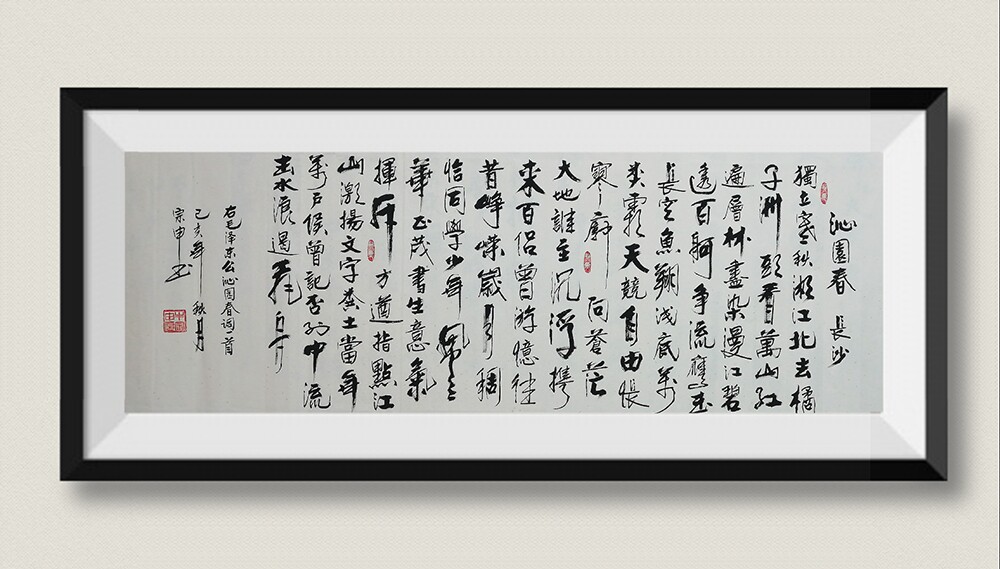 沁園春 長沙
獨立寒秋湘江北去橘
子洲頭看萬山紅
遍層林盡染漫江碧
透百舸争流鷹击
長空魚翔浅底万
类霜天競自由悵
寥廓问蒼茫
大地誰主沉浮攜
来百侣曾游憶往
昔崢嶸歲月稠
恰同學少年風
華正茂書生意氣
揮斥方遒指點江
山激揚文字粪土當年
萬户侯曾記否到中流
击水浪遏飛舟
右毛泽东公沁园春词一首
己亥年秋月
宗申书